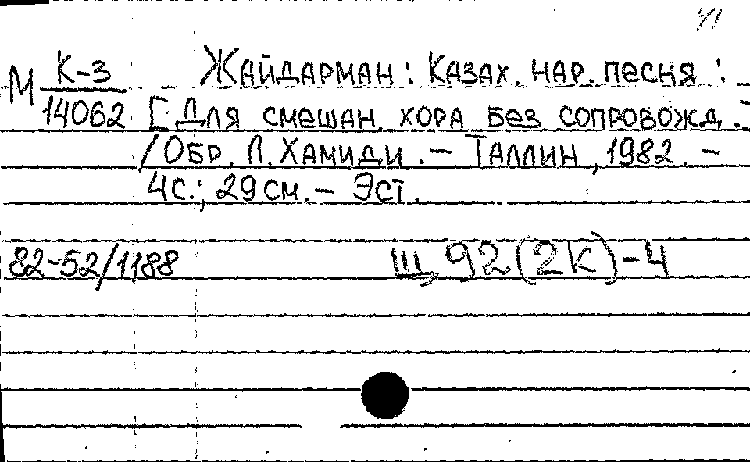 М К-3 Жайдарман: Казах. нар. песня :
14062 [Для смешан. хора без сопровожд.]
/Обр. Л. Хамиди. – Таллин, 1982. –
4с.; 29см. – Эст.
82-52/1188 Щ92(2К)-4